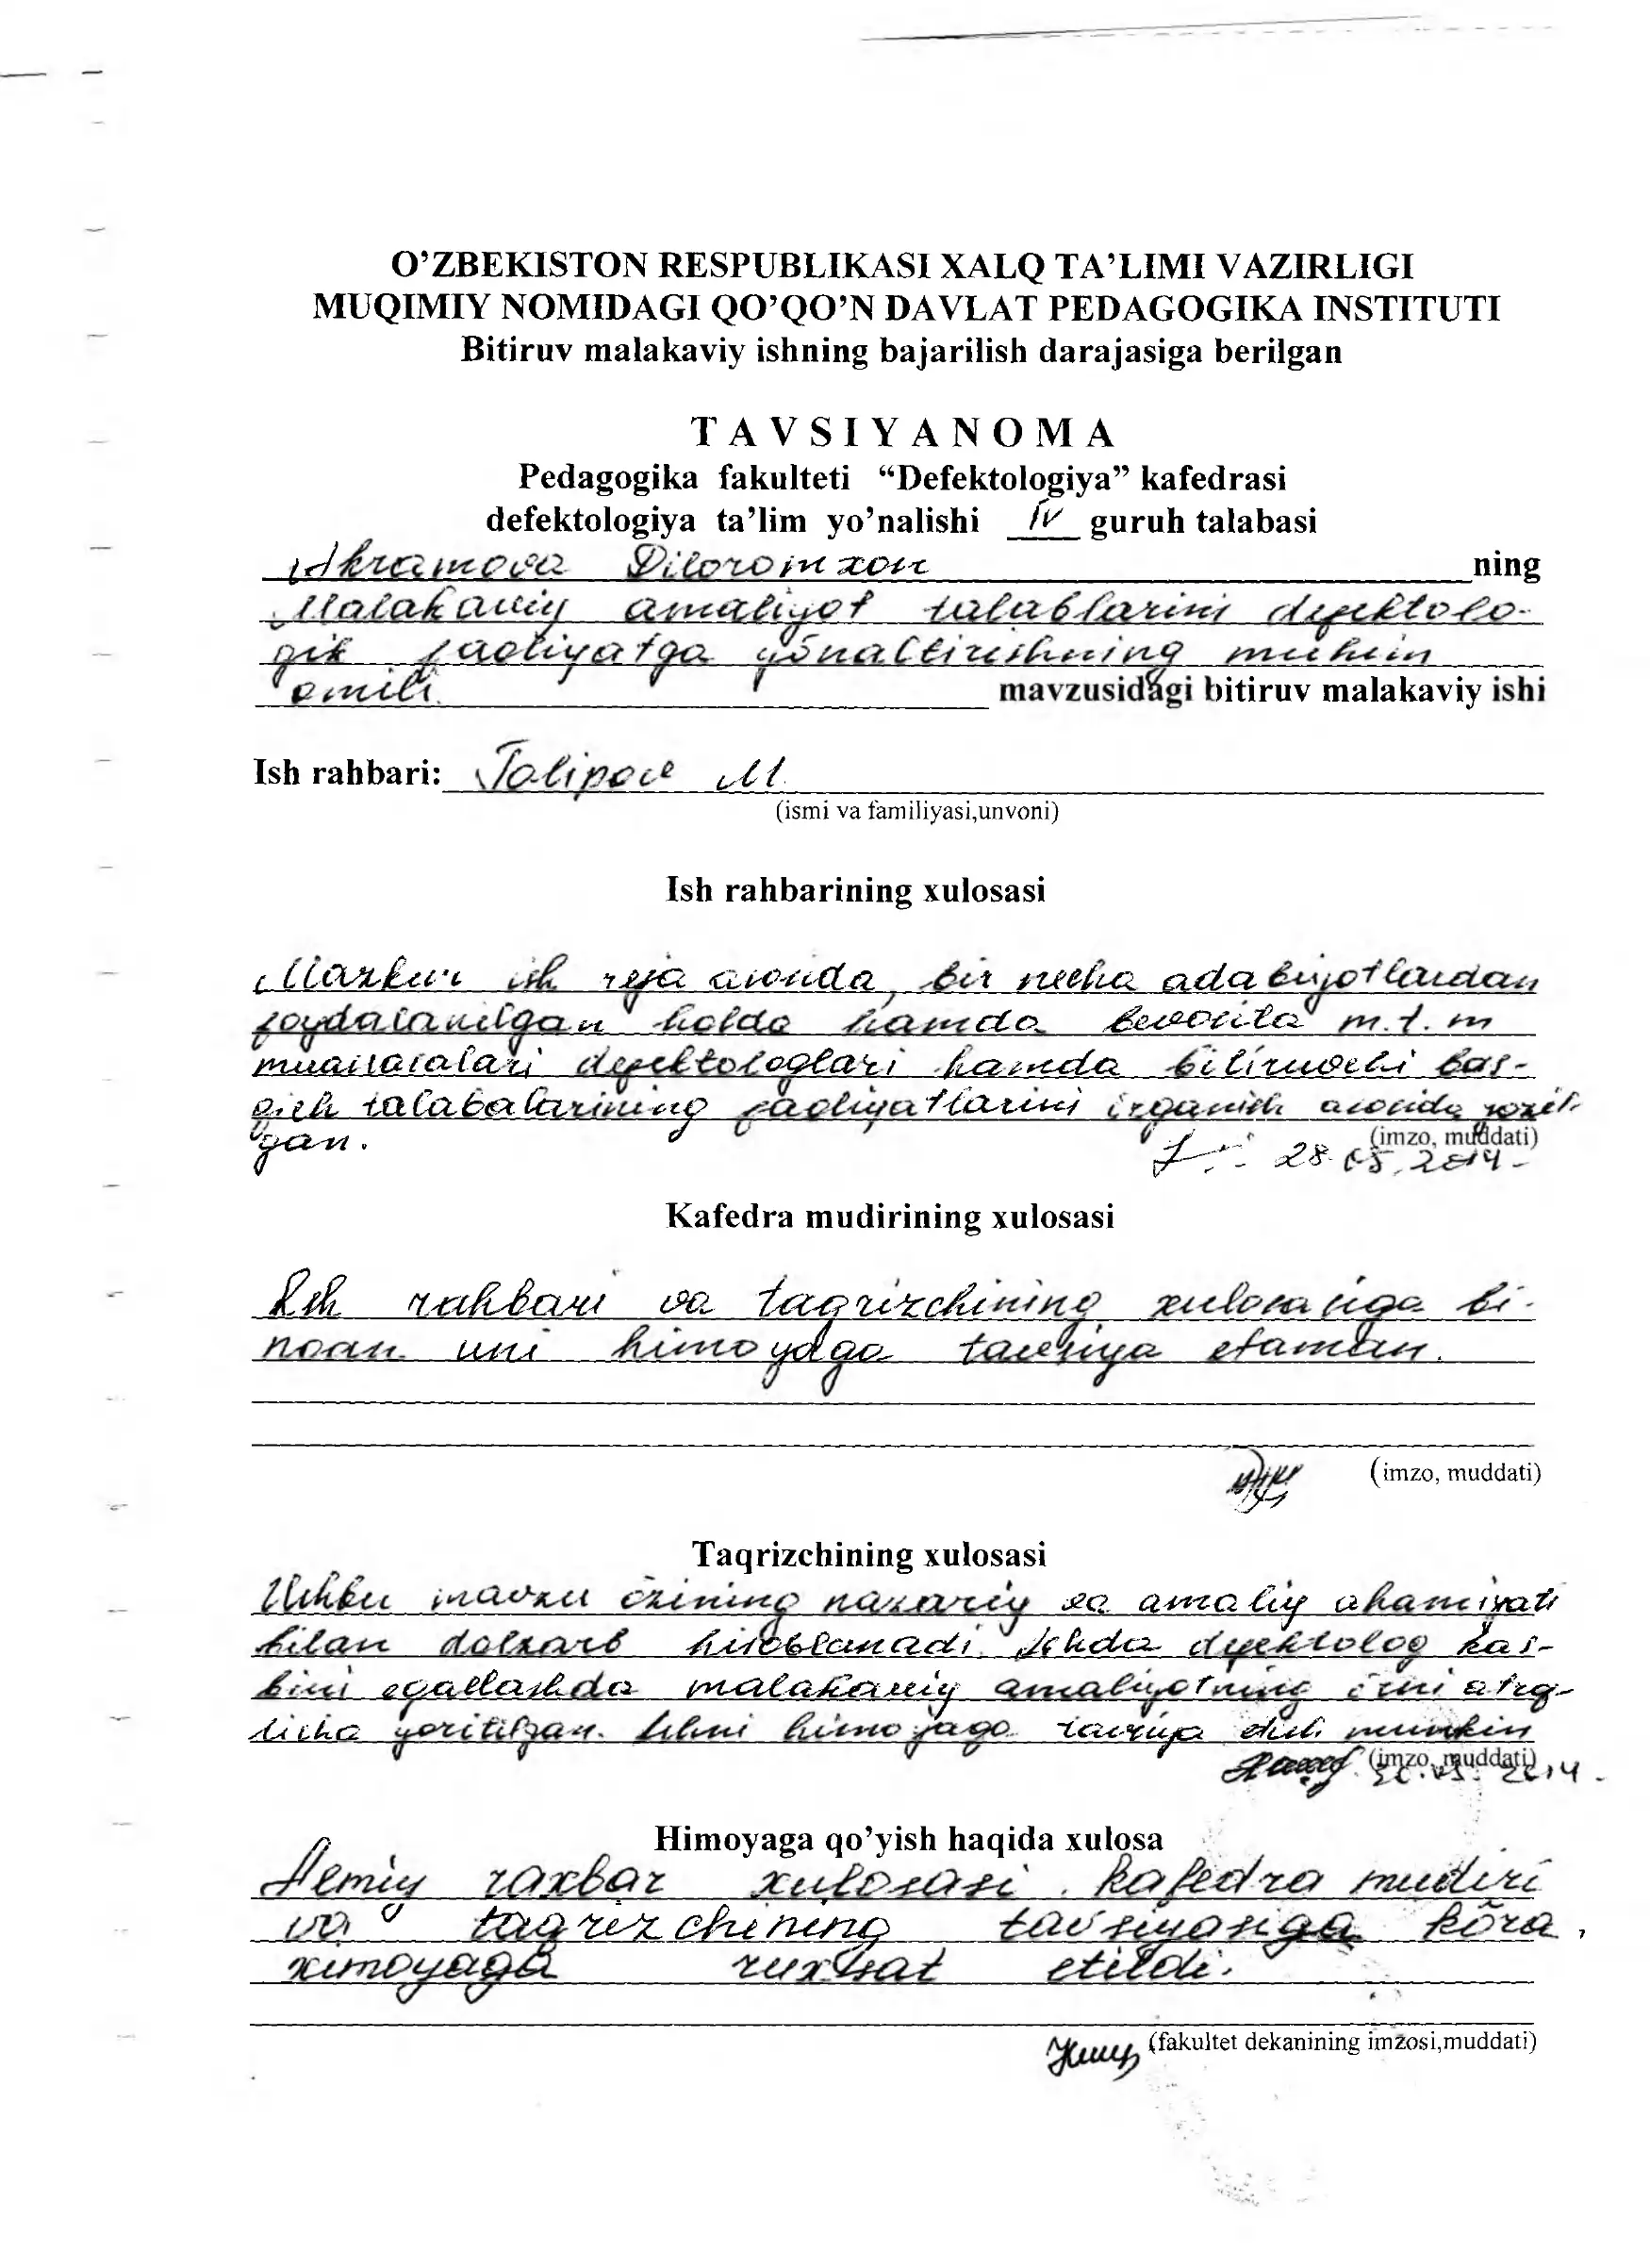 O’ZBEKISTON RESPUBLIKASI XALQ TA’LIMI VAZIRLIGI
MUQIMIY NOMIDAGI QO’QO’N DAVLAT PEDAGOGIKA INSTITUTI
Bitiruv malakaviy ishning bajarilish darajasiga berilgan
TAVSIYANOMA
Pedagogika fakulteti “Defektologiya” kafedrasi
defektologiya ta’lim yo’nalishi IV guruh talabasi
Akramova Diloromxon ning
Malakaviy amaliyot talablarini defektolo-
gik faoliyatga yõnaltirishning muhim
omili. mavzusidagi bitiruv malakaviy ishi
Ish rahbari: Talipova M.
(ismi va familiyasi,unvoni)
Ish rahbarining xulosasi
Mazkur ish reja asosida, bir necha adabiyotlardan
foydalanilgan holda hamda bevosita m.t.m
muassasalari defektologlari hamda bitiruvchi bas-
qich talabalarining faoliyatlarini õrganish asosida yozil-
gan.
(imzo, muddati)
28.05.2014-
Kafedra mudirining xulosasi
Ish rahbari va taqrizchining xulosasiga bi-
noan uni himoyaga tavsiya etaman.
(imzo, muddati)
Taqrizchining xulosasi
Ushbu mavzu õzining nazariy va amaliy ahamiyati
bilan dolzarb hisoblanadi. Ishda defektolog kas-
bini egallashda malakaviy amaliyotning õrni atrof-
licha yoritilgan. Ishni himoyaga tavsiya etish mumkin
(imzo, muddati)
2014.
Himoyaga qo’yish haqida xulosa
Ilmiy raxbar xulosasi, kafedra mudiri
va taqrizchining tavsiyasiga kõra,
ximoyaga ruxsat etildi.
(fakultet dekanining imzosi,muddati)